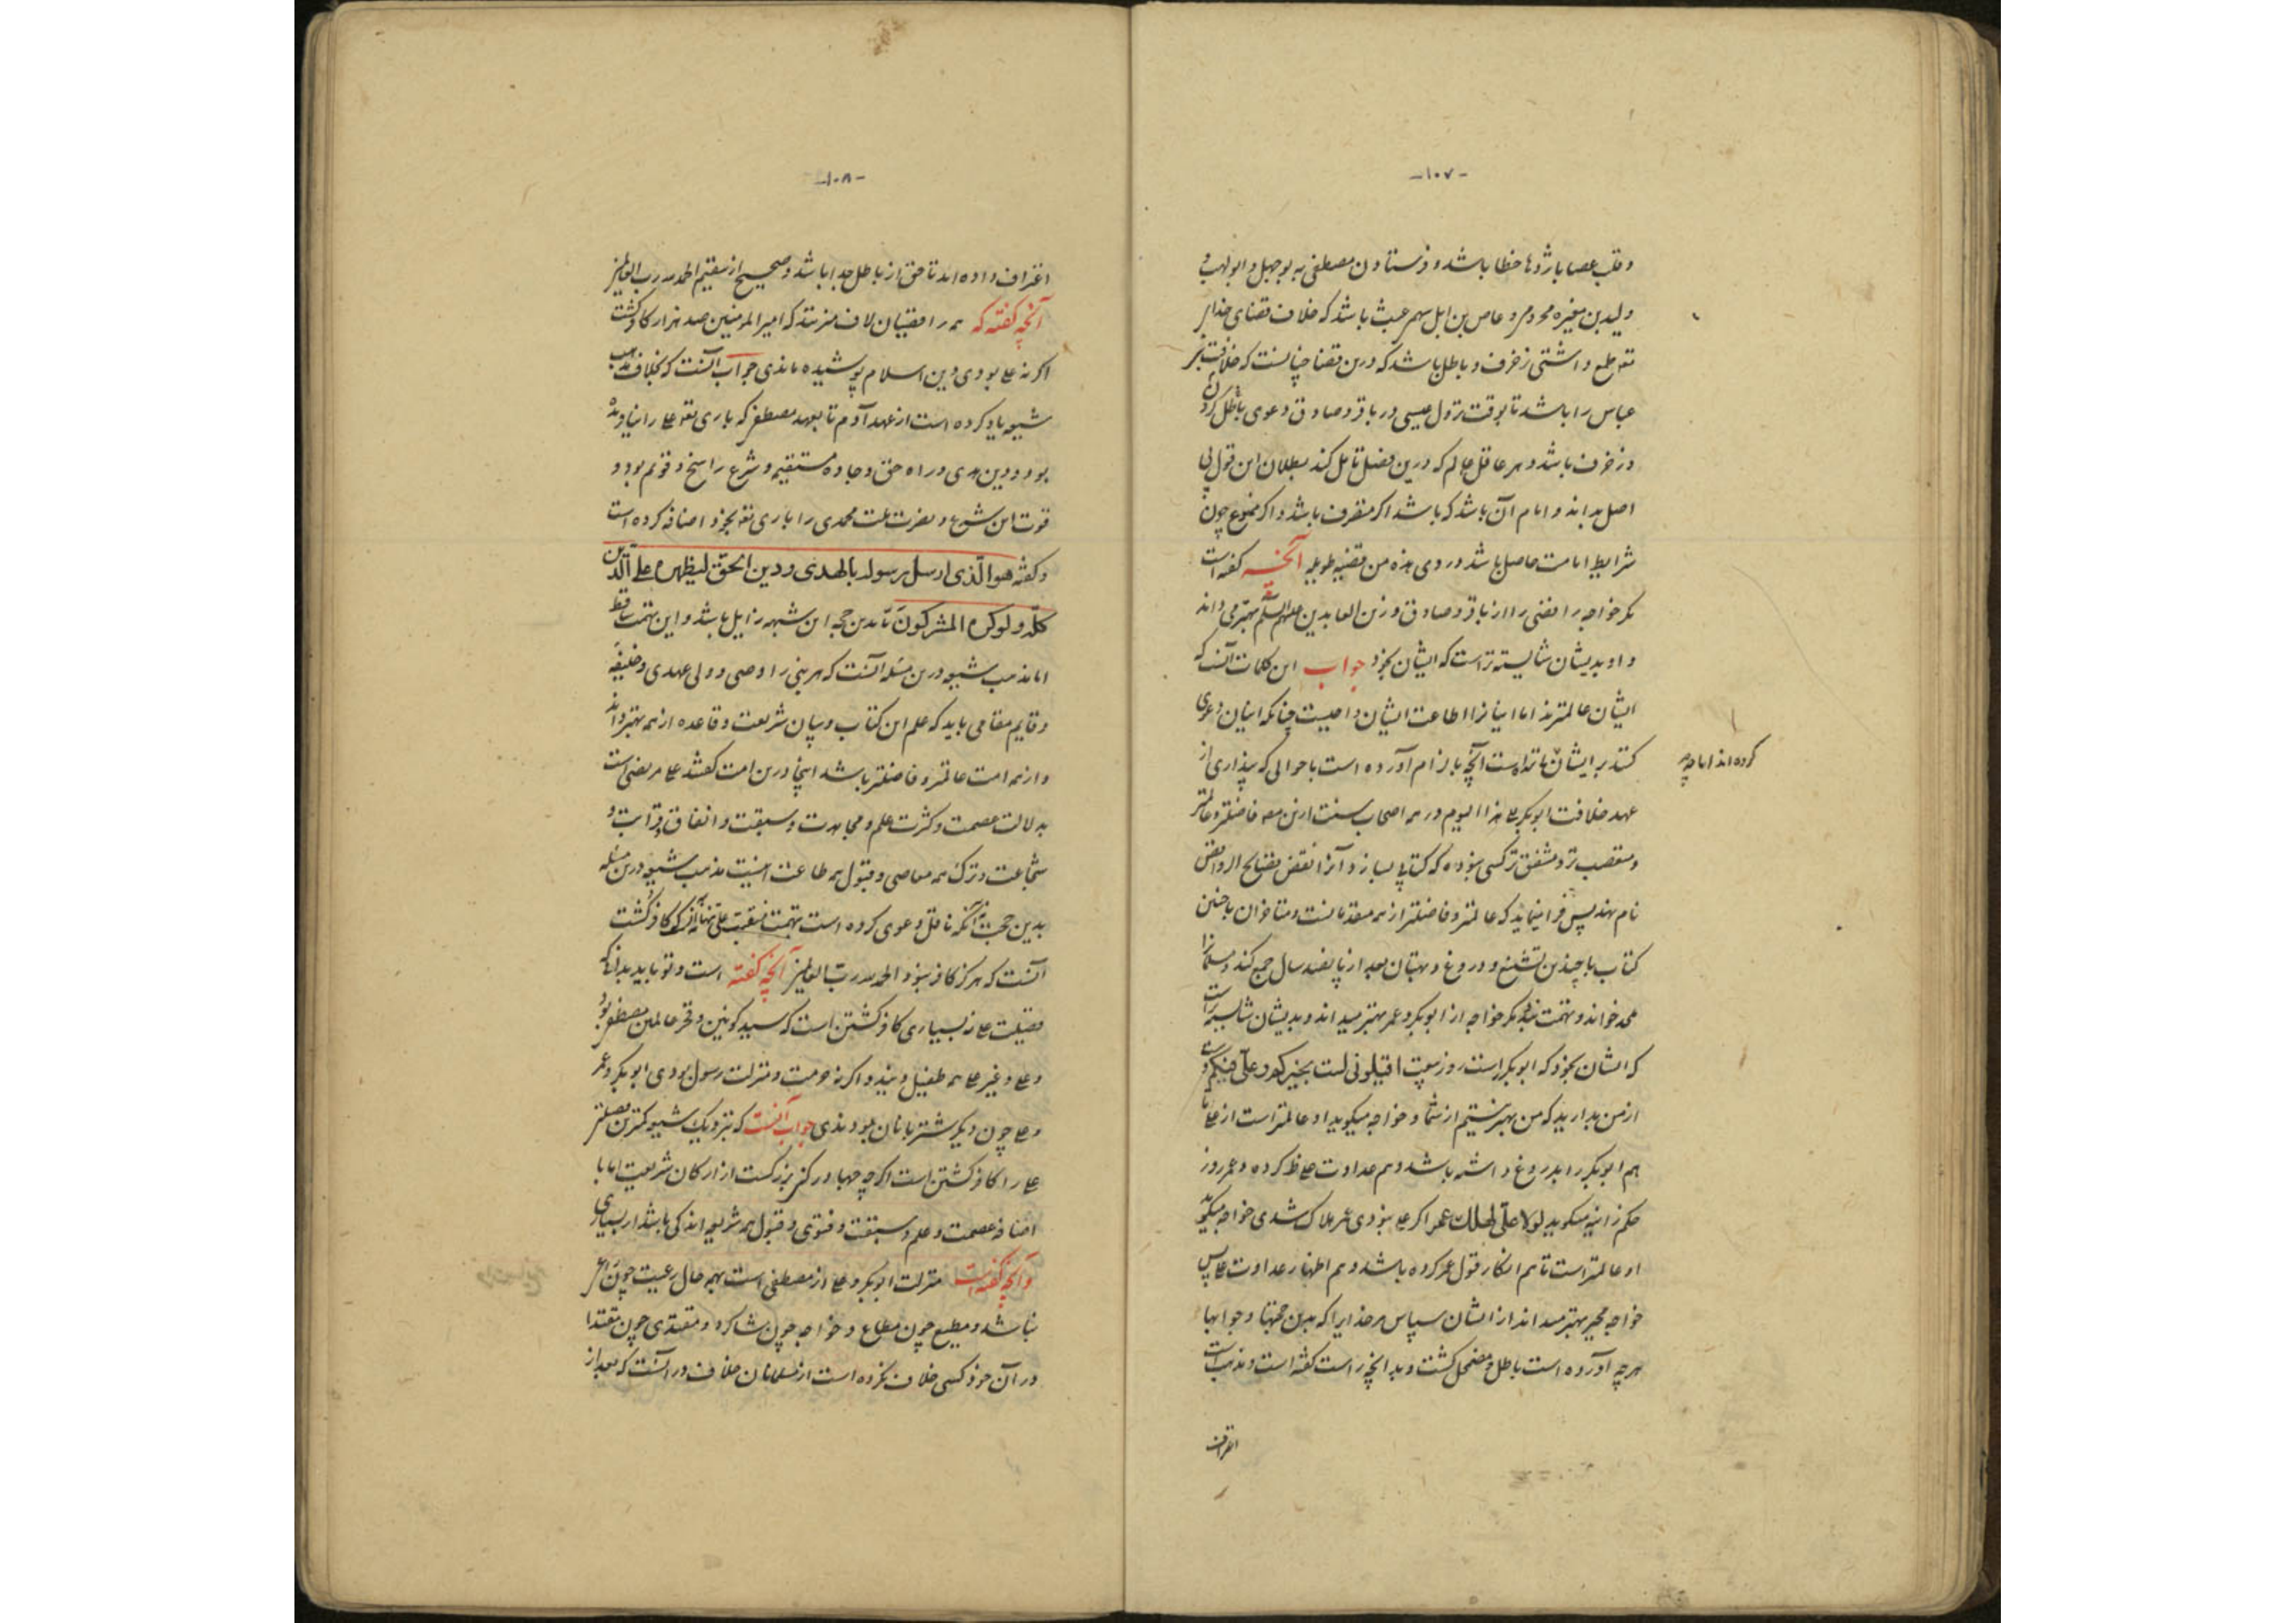 -۱۰۷-
و قلب عصا با ژدها خطا باشد و فرستادن مصطفی به بوجهل و ابولهب و
ولید بن مغیره مخزومی و عاص بن وایل سهمی عبث باشد که خلاف قضای خدای
تع طمع داشتی زخرف و باطل باشد که درین قضا چنانست که خلافت
عباس را باشد تا بوقت نزول عیسی در باقر و صادق دعوی باطل کردن
و زخرف باشد و هر عاقل عالم که درین فصل تامل کند بطلان این قول بی
اصل بداند و امام آن باشد که باشد اکر متصرف باشد و اکر ممنوع چون
شرایط امامت حاصل باشد دروی هذه من قضیه طویله آنچه کفته است
مکر خواجه رافضی را از باقر و صادق و زین العابدین علیهم السلم بهتر می داند
و او بدیشان شایسته تر است که ایشان بخود جواب این کلمات آنست که
ایشان عالمترند اما اینانرا اطاعت ایشان واجبست چنانکه اینان دعوی
کنند بر ایشان آنچه با لزام آورده است با حوالی که پنداری از
کرده اند اما چه
عهد خلافت ابوبکر الی هذا الیوم در همه اصحاب سنت ازین فاضلتر و عالمتر
و متعصب تر و مشفق تر کسی نبوده که کتابی بسازد و آنرا نقض فضایح الروافض
نام نهد پس فرا مینماید که عالمتر و فاضلتر از همه متقدمانست و متاخران با چنین
کتاب با چندین تشنیع و دروغ و بهتان بعد از پانصد سال جمع کند و مسلمانرا
ملحد خواند و تهمت نهد مکر خواجه از ابوبکر و عمر بهتر میداند و بدیشان شایسته تر است
که ایشان بخود که ابوبکر است روز بیعت اقیلونی لست بخیرکم و علی فیکم دست
از من بدارید که من بهتر نیستم از شما و خواجه میکوید او عالمتر است از علی تا
هم ابوبکر را بدروغ داشته باشد و هم عداوت علی ظ کرده و عمر روز
حکم زانیه میکوید لولا علی لهلک عمر اکر علی نبودی عمر هلاک شدی خواجه میکوید
او عالمتر است تا هم انکار قول عمر کرده باشد و هم اظهار عداوت علی پس
خواجه مجبر بهتر میداند از ایشان سپاس مر خدایرا که بدین حجتها و جوابها
هر چه آورده است باطل و مضمحل کشت و بد آنچه راست کفته است و مذهب است
اعتراف
-۱۰۸-
اعتراف داده اند تا حق از باطل جدا باشد و صحیح از سقیم الحمد لله رب العالمین
آنچه کفته که همه رافضیان لاف می زنند که امیر المومنین صد هزار کافر کشت
اکر نه علی بودی دین اسلام پوشیده ماندی جواب آنست که بخلاف مذهب
شیعه یاد کرده است از عهد آدم تا بعهد مصطفی که باری تع علی را نیافریده
بود و دین هدی و راه حق و جاده مستقیم و شرع راسخ و قویم بود و
قوت این شرع و نصرت ملت محمدی را باری تع بخود اضافه کرده است
و کفته هو الذی ارسل رسوله بالهدی و دین الحق لیظهره علی الدین
کله و لو کره المشرکون تا بدین حجه این شبهه زایل باشد و این تهمت ساقط
اما مذهب شیعه درین مسئله آنست که هر نبی را وصی و ولی عهدی و خلیفه
و قایم مقامی باید که علم این کتاب و بیان شریعت و قاعده از همه بهتر داند
و از همه امت عالمتر و فاضلتر باشد اینجا درین امت کفتند علی مرتضی است
بدلالت عصمت و کثرت علم و مجاهدت و سبقت و انفاق و قرابت و
شجاعت و ترک همه معاصی و قبول همه طاعت اینست مذهب شیعه درین مسئله
بدین حجت نه آنکه ناقل دعوی کرده است بتهمت منقبت علی نه آنکه کافر کشت
آنست که هرکز کافر نبود الحمد لله رب العالمین آنچه کفته است و تو باید بدانی که
فضیلت علی نه بسیاری کافر کشتن است که سید کونین و فخر عالمین مصطفی بود
و علی و غیر علی همه طفیل ویند و اکر نه حرمت و منزلت رسول بودی ابوبکر و عمر
و علی چون دیکر شتربانان بودندی جواب آنست که بنزدیک شیعه کمترین فضل
علی را کافر کشتن است اکرچه جهاد رکنی بزرکست از ارکان شریعت اما با
اضافه عصمت و علم و سبقت و فتوی و قبول همه شریعه اندکی باشد از بسیاری
و آنچه کفته است منزلت ابوبکر و علی از مصطفی است بهمه حال رعیت چون امیر
نباشد و مطیع چون مطاع و خواجه چون شاکرد و مقتدی چون مقتدا
در آن خود کسی خلاف نکرده است از مسلمانان خلاف در آنست که بعد از